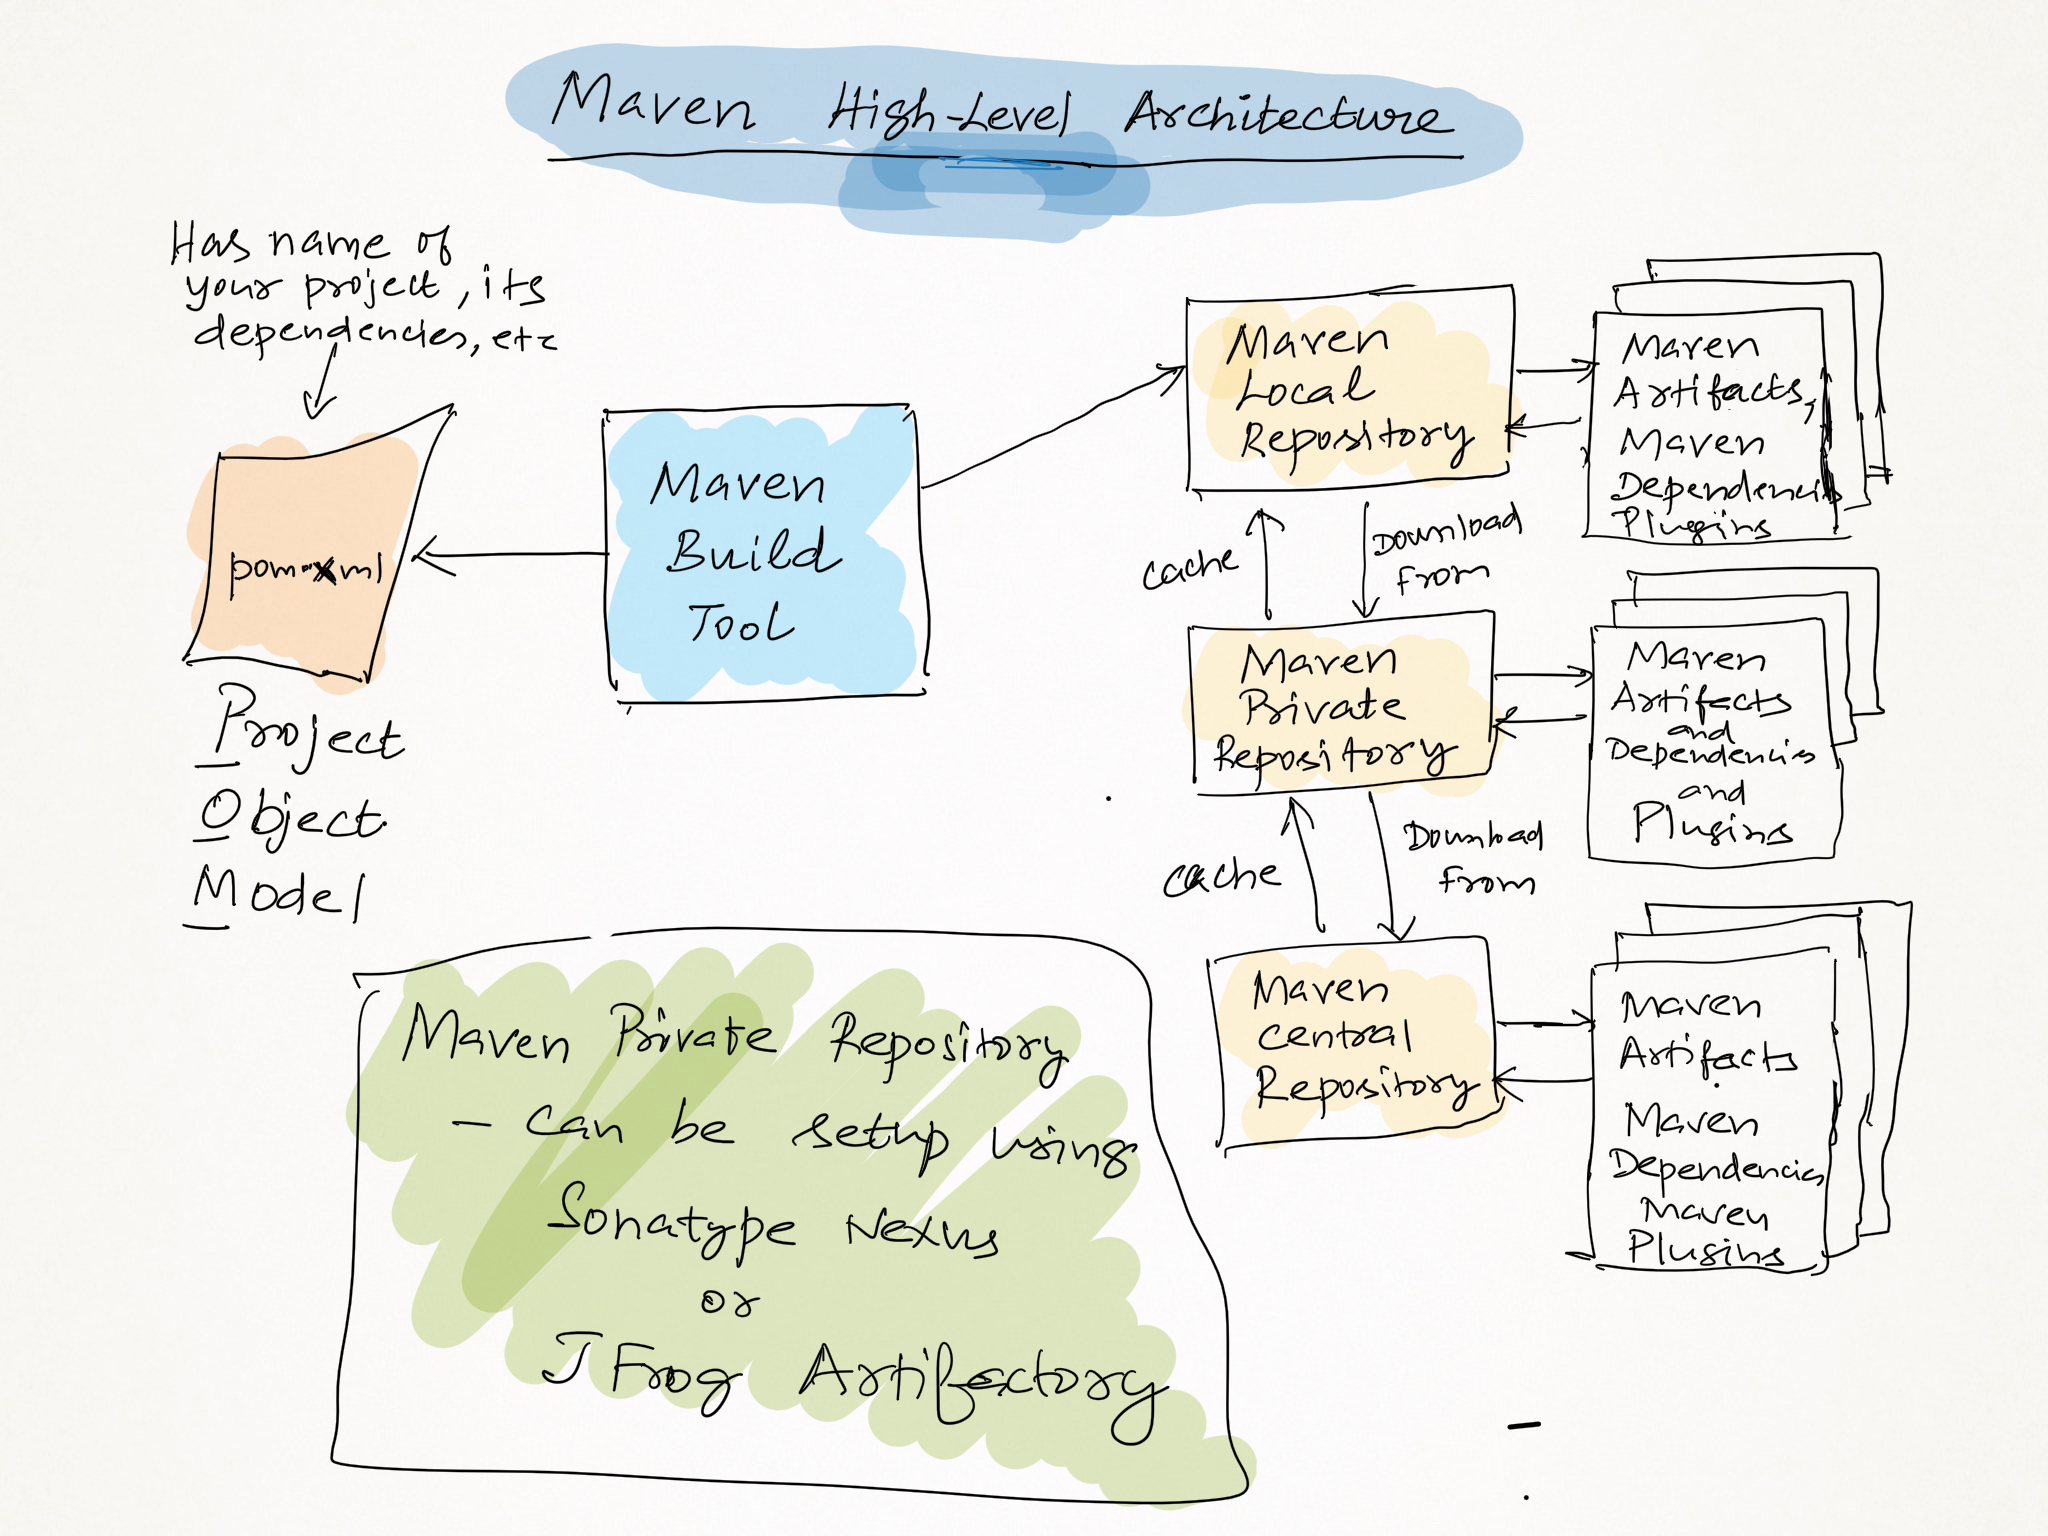 Maven High-Level Architecture
Has name of
your project, its
dependencies, etc
pom.xml
Project
Object
Model
Maven
Build
Tool
Maven
Local
Repository
Maven
Artifacts,
Maven
Dependencies
Plugins
cache
Download
from
Maven
Private
Repository
Maven
Artifacts
and
Dependencies
and
Plugins
cache
Download
from
Maven
Central
Repository
Maven
Artifacts
Maven
Dependencies
Maven
Plugins
Maven Private Repository
- can be setup using
Sonatype Nexus
or
JFrog Artifactory